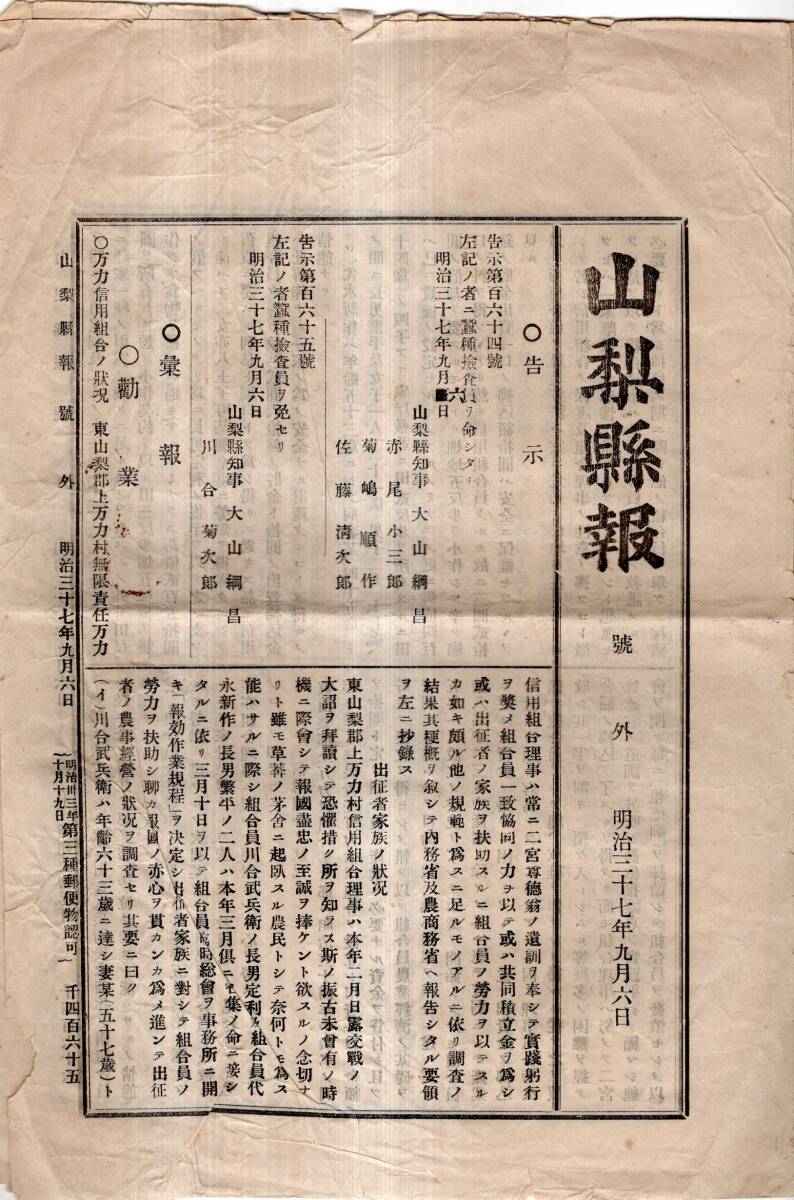 山梨縣報
號外
明治三十七年九月六日
〇告示
告示第百六十四號
左記ノ者ニ蠶種撿査員ヲ命シタリ
明治三十七年九月六日
山梨縣知事 大山綱昌
赤尾小三郎
菊嶋順作
佐藤淸次郎
告示第百六十五號
左記ノ者蠶種撿査員ヲ免セリ
明治三十七年九月六日
山梨縣知事 大山綱昌
川合菊次郎
〇彙報
〇勸業
〇万力信用組合ノ狀況 東山梨郡上万力村無限責任万力
信用組合理事ハ常ニ二宮尊德翁ノ遺訓ヲ奉シテ實踐躬行
ヲ奬メ組合員一致協同ノ力ヲ以テ或ハ共同積立金ヲ爲シ
或ハ出征者ノ家族ヲ扶助スルニ組合員ノ勞力ヲ以テスル
カ如キ頗ル他ノ規範ト爲スニ足ルモノアルニ依リ調査ノ
結果其梗槪ヲ叙シテ內務省及農商務省ヘ報告シタル要領
ヲ左ニ抄錄ス
出征者家族ノ狀況
東山梨郡上万力村信用組合理事ハ本年二月日露交戰ノ
大詔ヲ拜讀シテ恐懼措ク所ヲ知ラス斯ノ振古未曾有ノ時
機ニ際會シテ報國盡忠ノ至誠ヲ捧ケント欲スルノ念切ナ
リト雖モ草莾ノ茅舍ニ起臥スル農民トシテ奈何トモ爲ス
能ハサルニ際シ組合員川合武兵衛ノ長男定利及組合員代
永新作ノ長男繁平ノ二人ハ本年三月俱ニ集ノ命ニ接シ
タルニ依リ三月十日ヲ以テ組合員臨時總會ヲ事務所ニ開
キ「報効作業規程」ヲ決定シ出征者家族ニ對シテ組合員ノ
勞力ヲ扶助シ聊カ報國ノ赤心ヲ貫カンカ爲メ進ンテ出征
者ノ農事經營ノ狀况ヲ調査セリ其要ニ曰ク
(イ)川合武兵衛ハ年齡六十三歲ニ達シ妻某(五十七歲)ト
山梨縣報 號外 明治三十七年九月六日 明治卅三年十月十九日第三種郵便物認可 千四百六十五